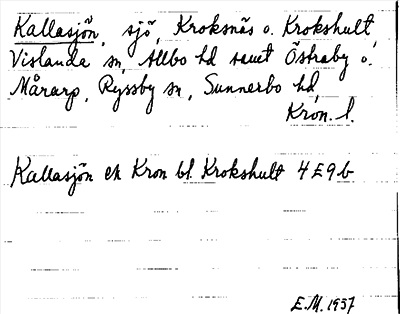 Kallasjön, sjö, Kroksnäs o. Krokshult,
Vislanda sn, Allbo hd samt Östraby o.
Mårarp, Ryssby sn, Sunnerbo hd,
Kron. l.
Kallasjön ek Kron bl. Krokshult 4E9b
E.M. 1957